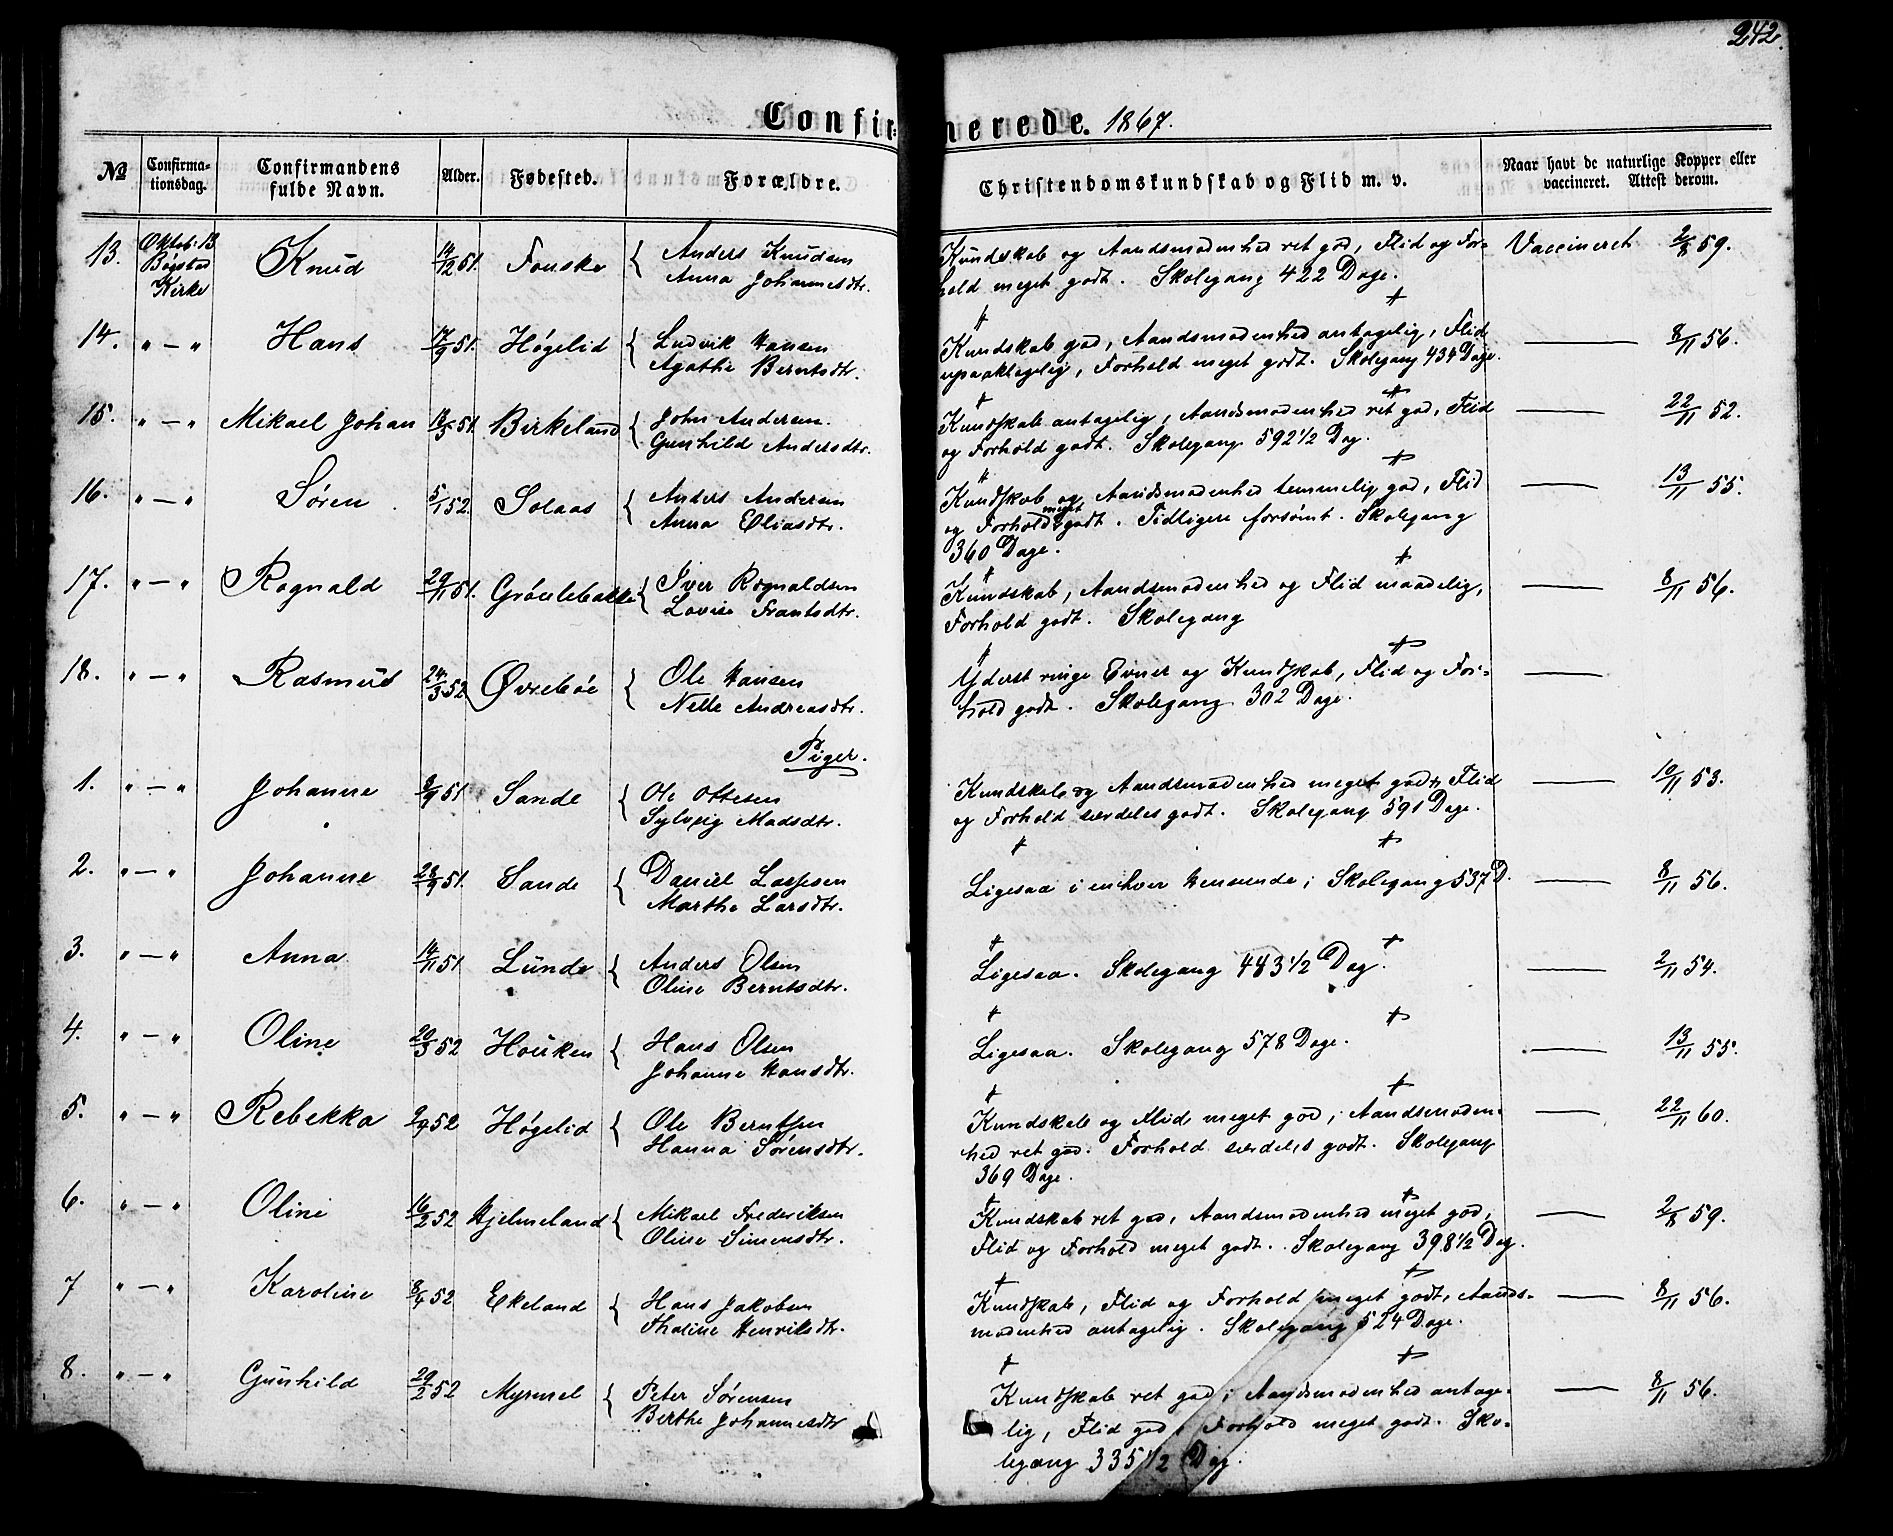 242.
Confirmerede. 1867.
№ Confirmationsdag. Confirmandens fulde Navn. Alder. Fødested. Forældre. Christendomskundskab og Flid m. v. Naar havt de naturlige Kopper eller vaccineret. Attest derom.
13. Oktob. 13 Bøjstad Kirke Knud 14/12 51. Fonske { Anders Knudsen Kundskab og Aandsmodenhed ret god, Flid og For- Vaccineret 2/8 59.
Anna Johannesdtr. hold meget godt. Skolegang 422 Dage.
14. " — " Hans 17/9 51. Høgelid { Ludvik Hansen Kundskab god, Aandsmodenhed antagelig, Flid —— 8/11 56.
Agathe Berntsdtr. upaaklagelig, Forhold meget godt. Skolegang 434 Dage.
15. " — " Mikael Johan 18/3 51. Birkeland { John Andersen. Kundskab antagelig, Aandsmodenhed ret god, Flid —— 22/11 52.
Gunhild Andersdtr. og Forhold godt. Skolegang 592 1/2 Dag.
16. " — " Søren 5/1 52 Solaas { Anders Andersen Kundskab og Aandsmodenhed temmelig god, Flid —— 13/11 55.
Anna Eliasdtr. og Forhold meget godt. Tidligere forsømt. Skolegang
360 Dage.
17. " — " Ragnald 29/11 51. Grøvlebakke { Iver Rognaldsen Kundskab, Aandsmodenhed og Flid maadelig, —— 8/11 56.
Lovise Frantsdtr. Forhold godt. Skolegang
18. " — " Rasmus 24/3 52 Øvrebøe { Ole Hansen Yderst ringe Evner og Kundskab, Flid og For- ——
Nelle Andreasdtr. hold godt. Skolegang 302 Dage.
Piger.
1. " — " Johanne 8/9 51 Sande { Ole Ottesen Kundskab og Aandsmodenhed meget god, Flid —— 10/11 53.
Sylvøig Madsdtr. og Forhold særdeles godt. Skolegang 591 Dage.
2. " — " Johanne 28/9 51. Sande { Daniel Lassesen Ligesaa i enhver Henseende; Skolegang 537 D. —— 8/11 56.
Marthe Larsdtr.
3. " — " Anna 14/11 51 Lunde { Anders Olsen Ligesaa. Skolegang 483 1/2 Dag. —— 2/11 54.
Oline Berntsdtr.
4. " — " Oline 20/3 52 Houken { Hans Olsen Ligesaa. Skolegang 578 Dage. —— 13/11 55.
Johanne Hansdtr.
5. " — " Rebekka 2/9 52 Høgelid { Ole Berntsen Kundskab og Flid meget god, Aandsmoden- —— 22/11 60.
Hanna Sørensdtr. hed ret god. Forhold særdeles godt. Skolegang
369 Dage.
6. " — " Oline 16/2 52 Hjelmeland { Mikael Frederiksen Kundskab ret god, Aandsmodenhed meget god, —— 2/8 59.
Oline Simensdtr. Flid og Forhold meget godt. Skolegang 398 1/2 Dag.
7 " — " Karoline 8/4 52 Ekeland { Hans Jakobsen Kundskab, Flid og Forhold meget godt, Aands- —— 8/11 56.
Thaline Henriksdtr. modenhed antagelig. Skolegang 524 Dage.
8. " — " Gunhild 29/2 52 Myrmel { Peter Sørensen Kundskab ret god; Aandsmodenhed antage- —— 8/11 56.
Berthe Johannesdtr lig, Flid god, Forhold meget godt. Sko-
legang 335 1/2 Dag.